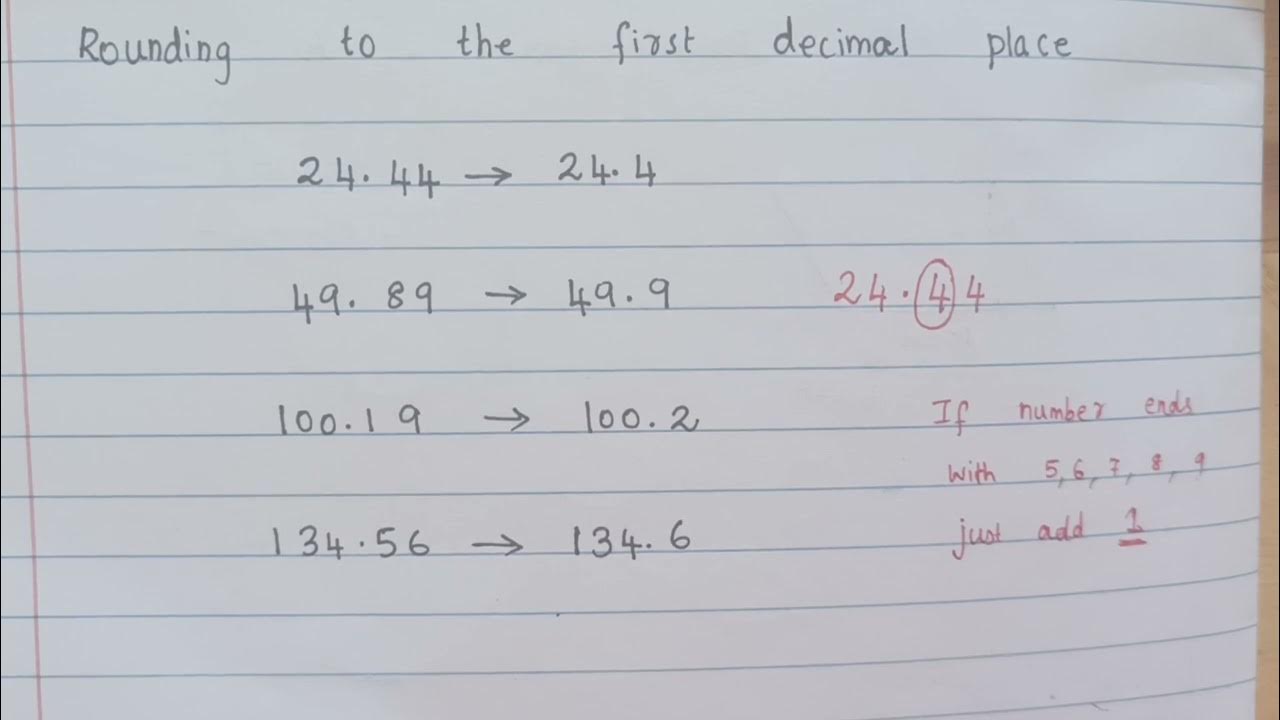 Rounding to the first decimal place
24.44 → 24.4
49.89 → 49.9
24.44
100.19 → 100.2
If number ends
with 5, 6, 7, 8, 9
134.56 → 134.6
just add 1